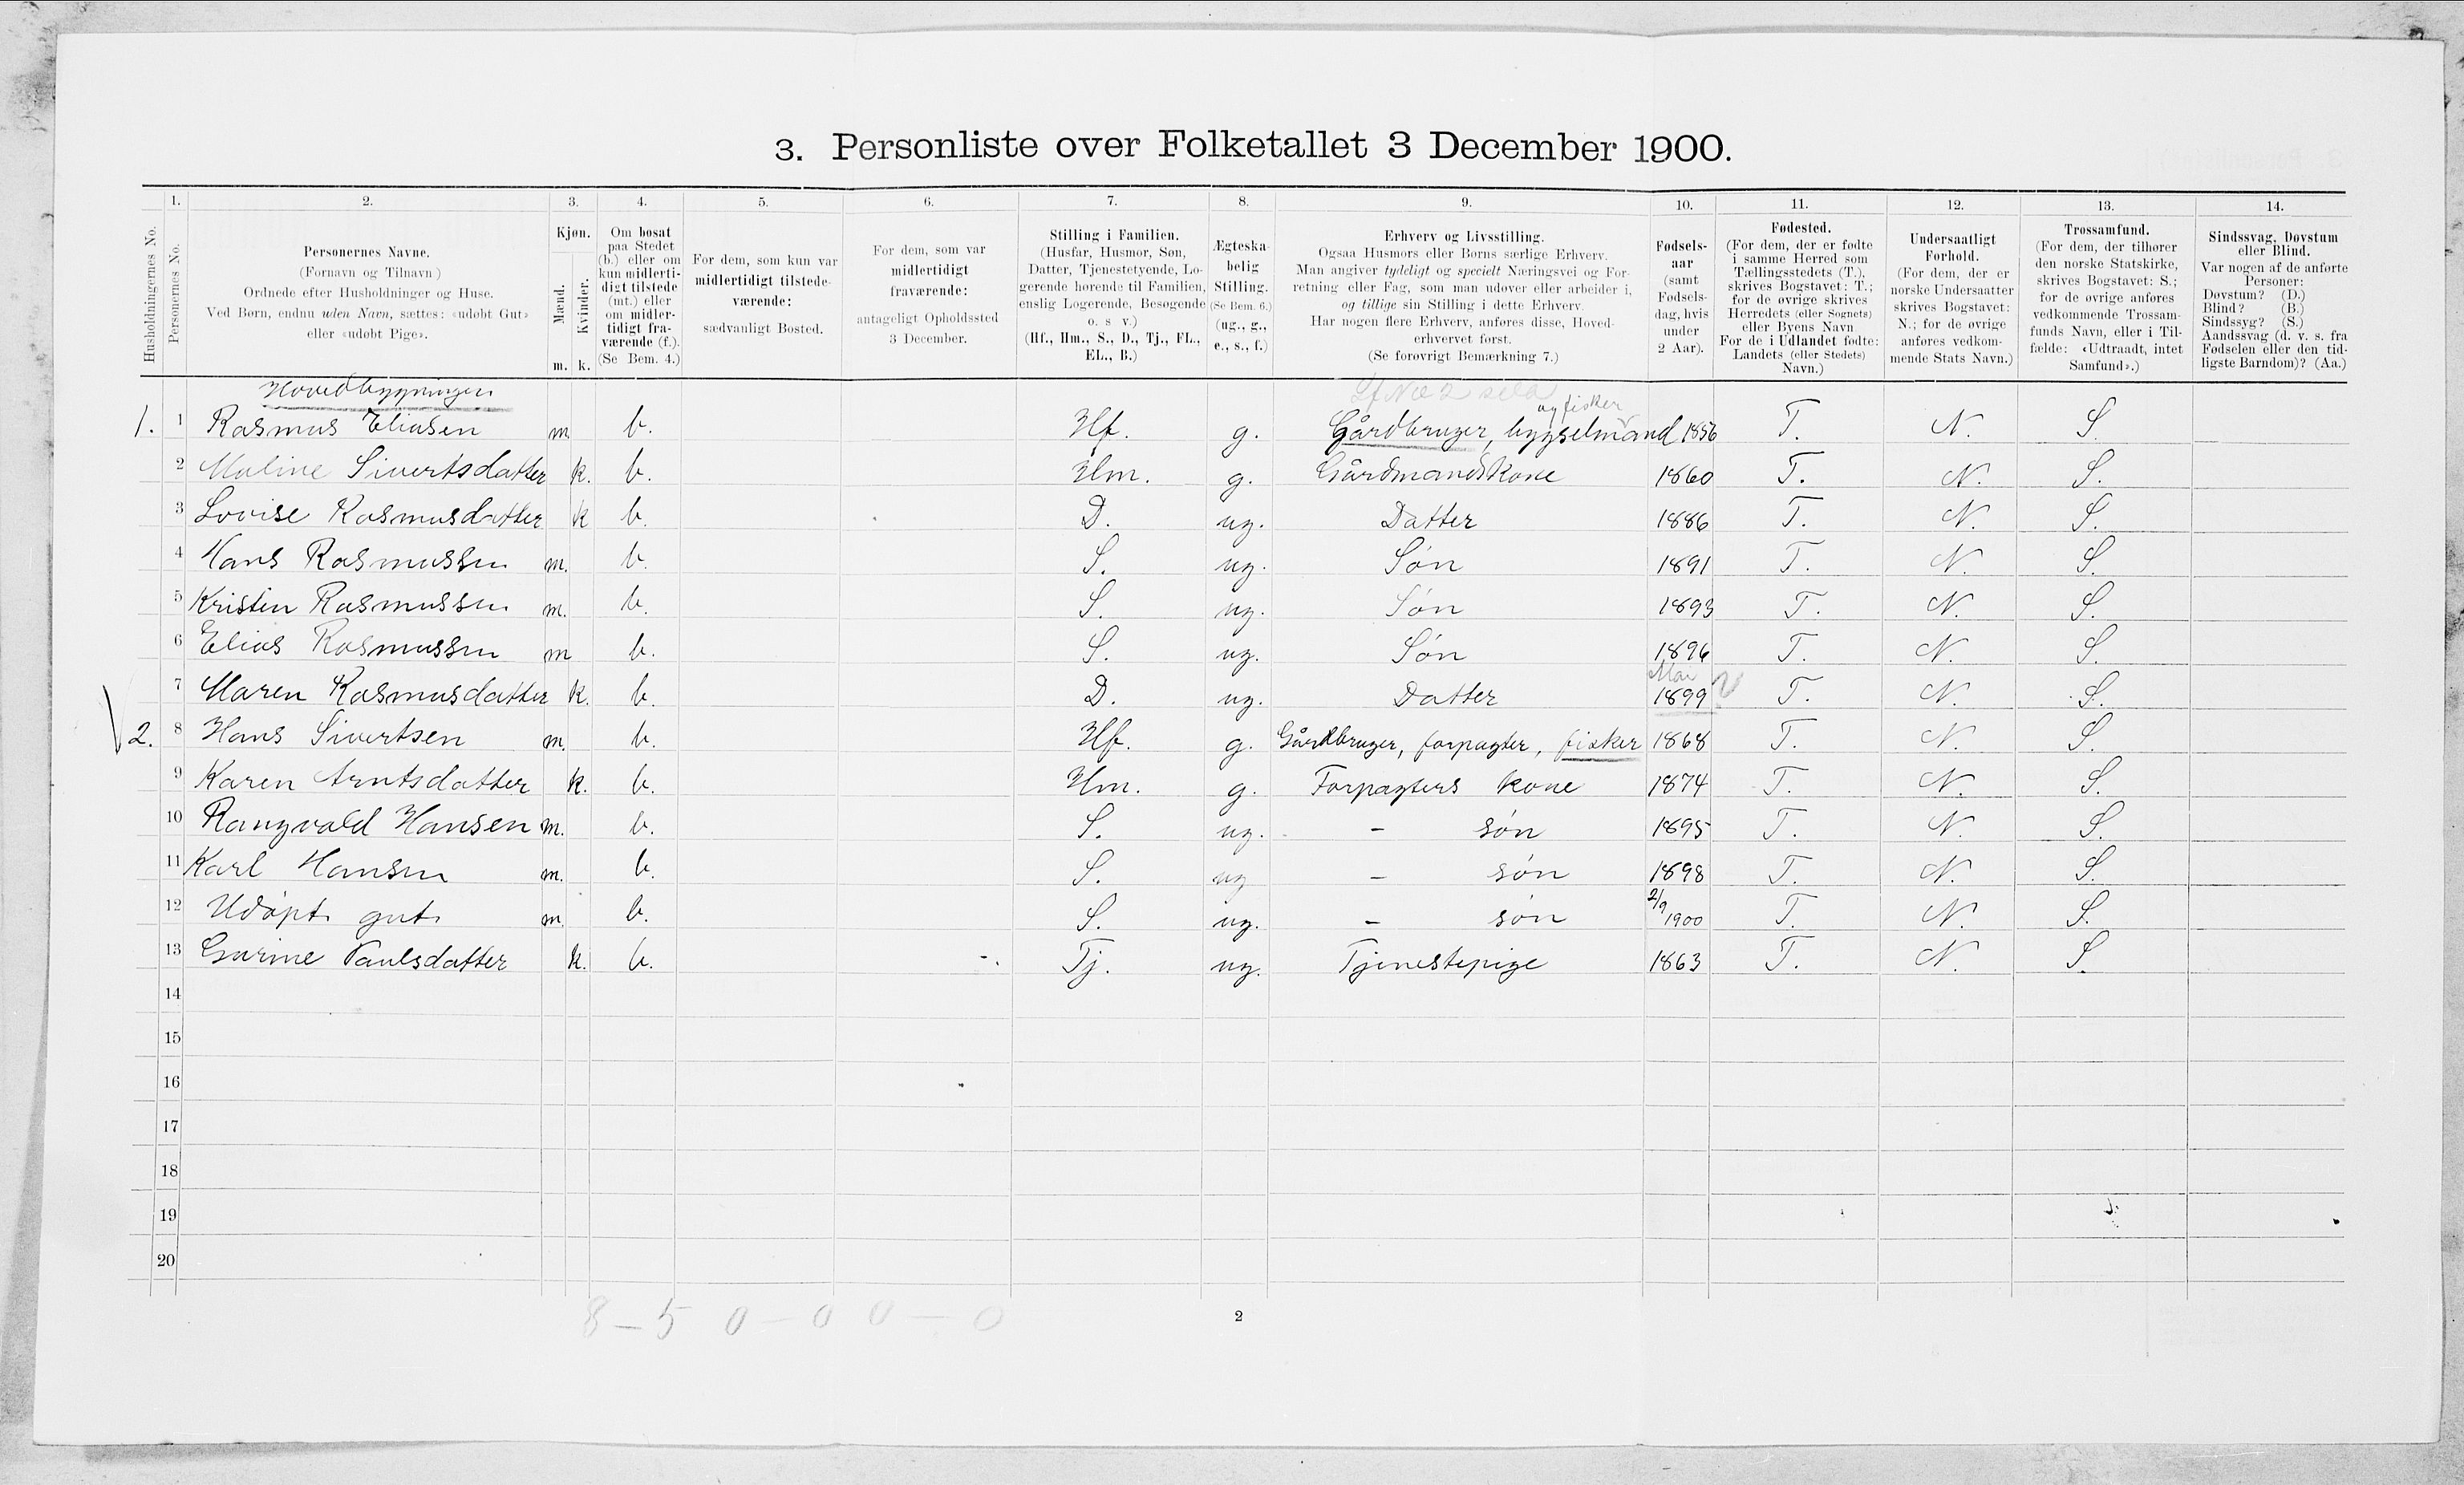 3. Personliste over Folketallet 3 December 1900.
1. 2. 3. 4. 5. 6. 7. 8. 9. 10. 11. 12. 13. 14.
Husholdningernes No.
Personernes No.
Personernes Navne.
(Fornavn og Tilnavn)
Ordnede efter Husholdninger og Huse.
Ved Børn, endnu uden Navn, sættes: «udøbt Gut»
eller «udøbt Pige».
Kjøn.
Mænd.
Kvinder.
m. k.
Om bosat
paa Stedet
(b.) eller om
kun midlerti-
digt tilstede
(mt.) eller
om midler-
tidigt fra-
værende (f.).
(Se Bem. 4.)
For dem, som kun var
midlertidigt tilstede-
værende:
sædvanligt Bosted.
For dem, som var
midlertidigt
fraværende:
antageligt Opholdssted
3 December.
Stilling i Familien.
(Husfar, Husmor, Søn,
Datter, Tjenestetyende, Lo-
gerende hørende til Familien,
enslig Logerende, Besøgende
o. s v.)
(Hf., Hm., S., D., Tj., FL.,
EL., B.)
Ægteska-
belig
Stilling.
(Se Bem. 6.)
(ug., g.,
e., s., f.)
Erhverv og Livsstilling.
Ogsaa Husmors eller Børns særlige Erhverv.
Man angiver tydeligt og specielt Næringsvei og For-
retning eller Fag, som man udøver eller arbeider i,
og tillige sin Stilling i dette Erhverv.
Har nogen flere Erhverv, anføres disse, Hoved-
erhvervet først.
(Se forøvrigt Bemærkning 7.)
Fødsels-
aar
(samt
Fødsels-
dag, hvis
under
2 Aar).
Fødested.
(For dem, der er fødte
i samme Herred som
Tællingsstedets (T.),
skrives Bogstavet: T.;
for de øvrige skrives
Herredets (eller Sognets)
eller Byens Navn
For de i Udlandet fødte:
Landets (eller Stedets)
Navn.)
Undersaatligt
Forhold.
(For dem, der er
norske Undersaatter
skrives Bogstavet:
N.; for de øvrige
anføres vedkom-
mende Stats Navn.)
Trossamfund.
(For dem, der tilhører
den norske Statskirke,
skrives Bogstavet: S.;
for de øvrige anføres
vedkommende Trossam-
funds Navn, eller i Til-
fælde: «Udtraadt, intet
Samfund».)
Sindssvag, Døvstum
eller Blind.
Var nogen af de anførte
Personer:
Døvstum? (D.)
Blind? (B.)
Sindssyg? (S.)
Aandssvag (d. v. s. fra
Fødselen eller den tid-
ligste Barndom)? (Aa.)
Hovedbygningen
og fisker
1. 1 Rasmus Eliasen m. b. Hf. g. Gårdbruger, bygselmand 1856 T. N. S.
2 Maline Sivertsdatter k. b. Hm. g. Gårdmandskone 1860 T. N. S.
3 Lovise Rasmusdatter k b. D. ug. Datter 1886 T. N. S.
4 Hans Rasmussen m. b. S. ug. Søn 1891 T. N. S.
5 Kristen Rasmussen m. b. S. ug. Søn 1893 T. N. S.
6 Elias Rasmussen m b. S. ug. Søn 1896 T. N. S.
Mai
7 Maren Rasmusdatter k. b. D. ug. Datter 1899 T. N. S.
2. 8 Hans Sivertsen m. b. Hf. g. Gårdbruger, forpagter, fisker 1868 T. N. S.
9 Karen Arntsdatter k. b. Hm. g. Forpagters kone 1874 T. N. S.
10 Rangvald Hansen m. b. S. ug. - søn 1895 T. N. S.
11 Karl Hansen m. b. S. ug - søn 1898 T. N. S.
12 Udøpt gut m. b. S. ug. - søn 2/9 1900 T. N. S.
13 Gurine Paulsdatter k. b. Tj. ug. Tjenestepige 1863 T. N. S.
14
15
16
17
18
19
20
8 - 5 0 - 0 0 - 0
2